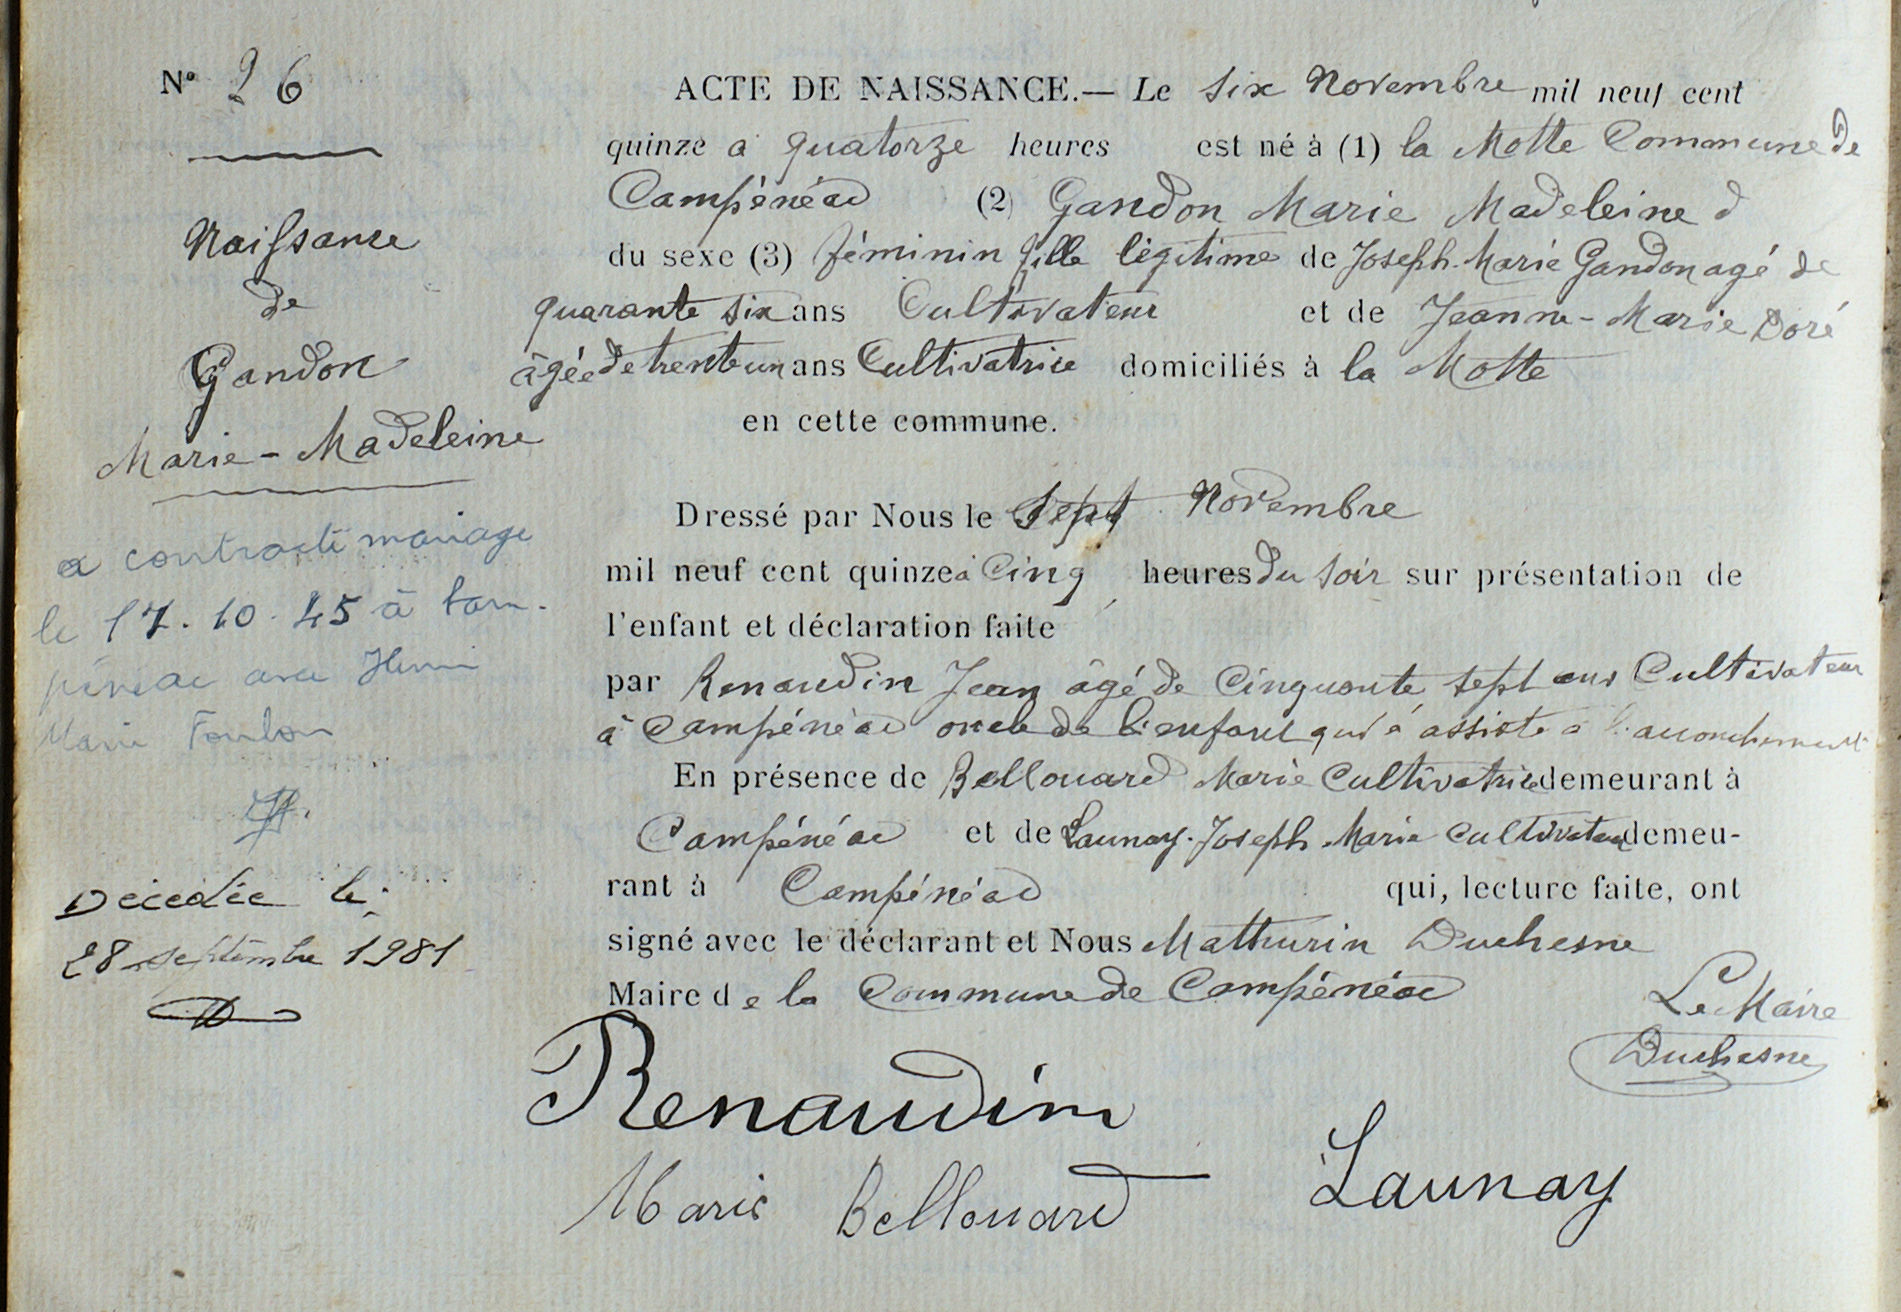 N° 26
Naissance
de
Gandon
Marie-Madeleine
a contracté mariage
le 17.10.45 à Cam-
pénéac avec Henri
Marie Foulon
Décédée le
28 septembre 1981
ACTE DE NAISSANCE.— Le six Novembre mil neuf cent
quinze à quatorze heures est né à (1) la Motte Commune de
Campénéac (2) Gandon Marie Madeleine d
du sexe (3) féminin fille légitime de Joseph-Marie Gandon agé de
quarante six ans Cultivateur et de Jeanne-Marie Doré
âgée de trente un ans Cultivatrice domiciliés à la Motte
en cette commune.
Dressé par Nous le Sept Novembre
mil neuf cent quinze à Cinq heures du soir sur présentation de
l'enfant et déclaration faite
par Renaudin Jean âgé de Cinquante sept ans Cultivateur
à Campénéac oncle de l'enfant qui a assisté à l'accouchement
En présence de Bellouard Marie Cultivatrice demeurant à
Campénéac et de Launay Joseph Marie Cultivateur demeu-
rant à Campénéac qui, lecture faite, ont
signé avec le déclarant et Nous Mathurin Duchesne
Maire de la Commune de Campénéac
Le Maire
Duchesne
Renaudin
Marie Bellouard
Launay